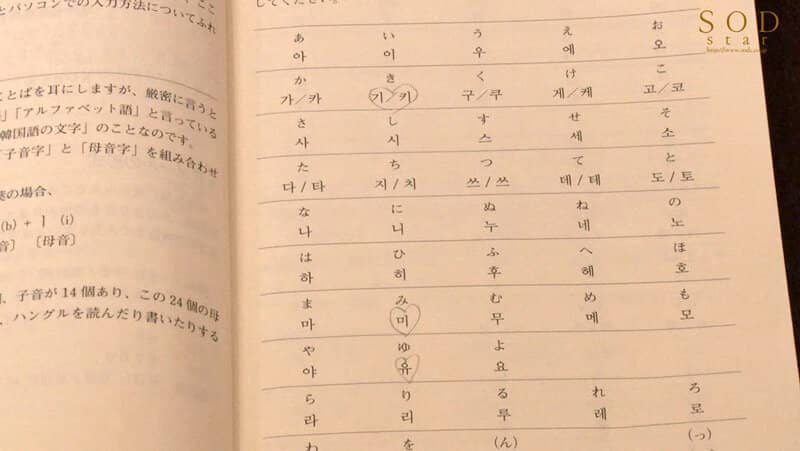 SOD
star
とパソコンでの入力方法についてふれ
ことばを耳にしますが、厳密に言うと
」「アルファベット語」と言っている
韓国語の文字」のことなのです。
「子音字」と「母音字」を組み合わせ
の場合、
(b) + ㅣ (i)
音〕 〔母音〕
、子音が14個あり、この24個の母
、ハングルを読んだり書いたりする
してください。
あ い う え お
아 이 우 에 오
か き く け こ
가/카 기/키 구/쿠 게/케 고/코
さ し す せ そ
사 시 스 세 소
た ち つ て と
다/타 지/치 쓰/쓰 데/테 도/토
な に ぬ ね の
나 니 누 네 노
は ひ ふ へ ほ
하 히 후 헤 호
ま み む め も
마 미 무 메 모
や ゆ よ
야 유 요
ら り る れ ろ
라 리 루 레 로
わ を (ん) (っ)